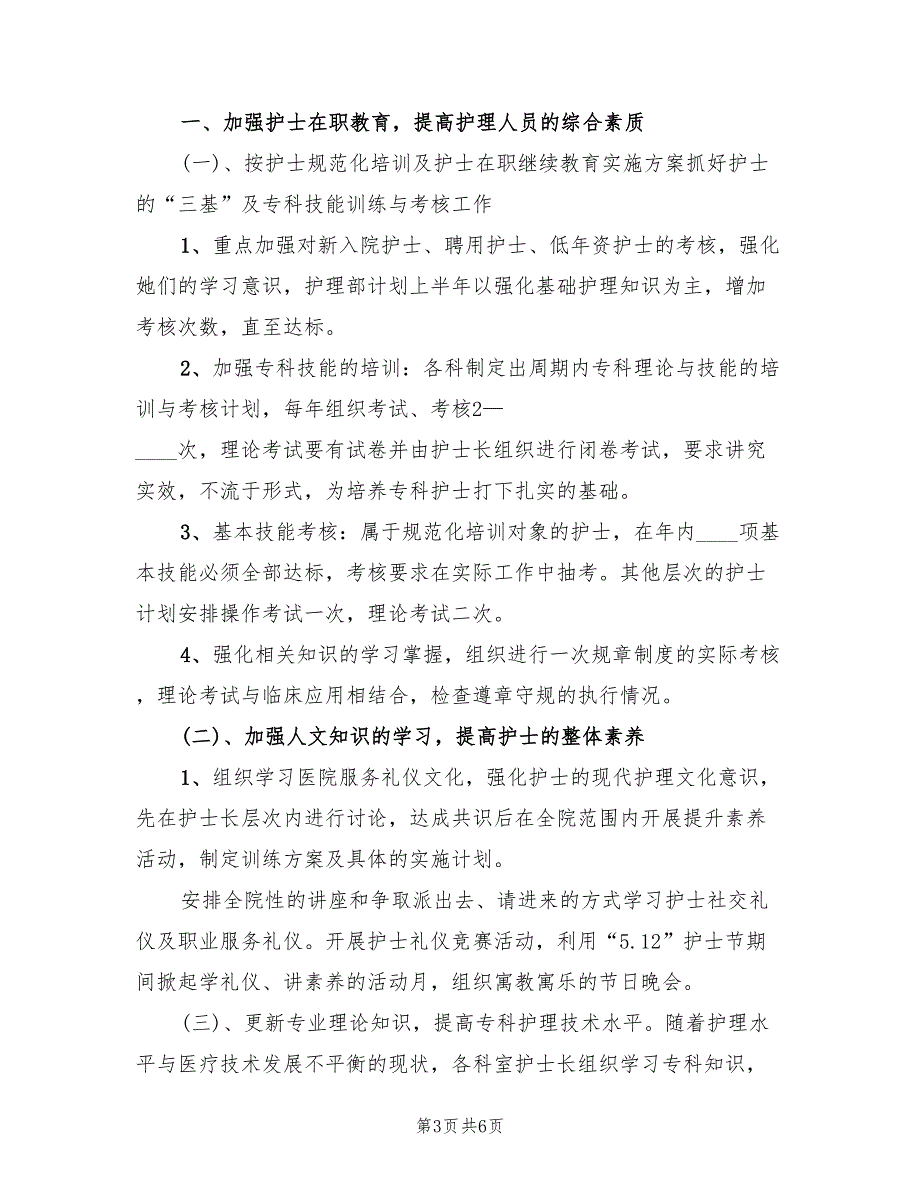 一、加强护士在职教育，提高护理人员的综合素质
(一)、按护士规范化培训及护士在职继续教育实施方案抓好护士
的“三基”及专科技能训练与考核工作
1、重点加强对新入院护士、聘用护士、低年资护士的考核，强化
她们的学习意识，护理部计划上半年以强化基础护理知识为主，增加
考核次数，直至达标。
2、加强专科技能的培训：各科制定出周期内专科理论与技能的培
训与考核计划，每年组织考试、考核2—
____次，理论考试要有试卷并由护士长组织进行闭卷考试，要求讲究
实效，不流于形式，为培养专科护士打下扎实的基础。
3、基本技能考核：属于规范化培训对象的护士，在年内____项基
本技能必须全部达标，考核要求在实际工作中抽考。其他层次的护士
计划安排操作考试一次，理论考试二次。
4、强化相关知识的学习掌握，组织进行一次规章制度的实际考核
，理论考试与临床应用相结合，检查遵章守规的执行情况。
(二)、加强人文知识的学习，提高护士的整体素养
1、组织学习医院服务礼仪文化，强化护士的现代护理文化意识，
先在护士长层次内进行讨论，达成共识后在全院范围内开展提升素养
活动，制定训练方案及具体的实施计划。
安排全院性的讲座和争取派出去、请进来的方式学习护士社交礼
仪及职业服务礼仪。开展护士礼仪竞赛活动，利用“5.12”护士节期
间掀起学礼仪、讲素养的活动月，组织寓教寓乐的节日晚会。
(三)、更新专业理论知识，提高专科护理技术水平。随着护理水
平与医疗技术发展不平衡的现状，各科室护士长组织学习专科知识，
第3页共6页